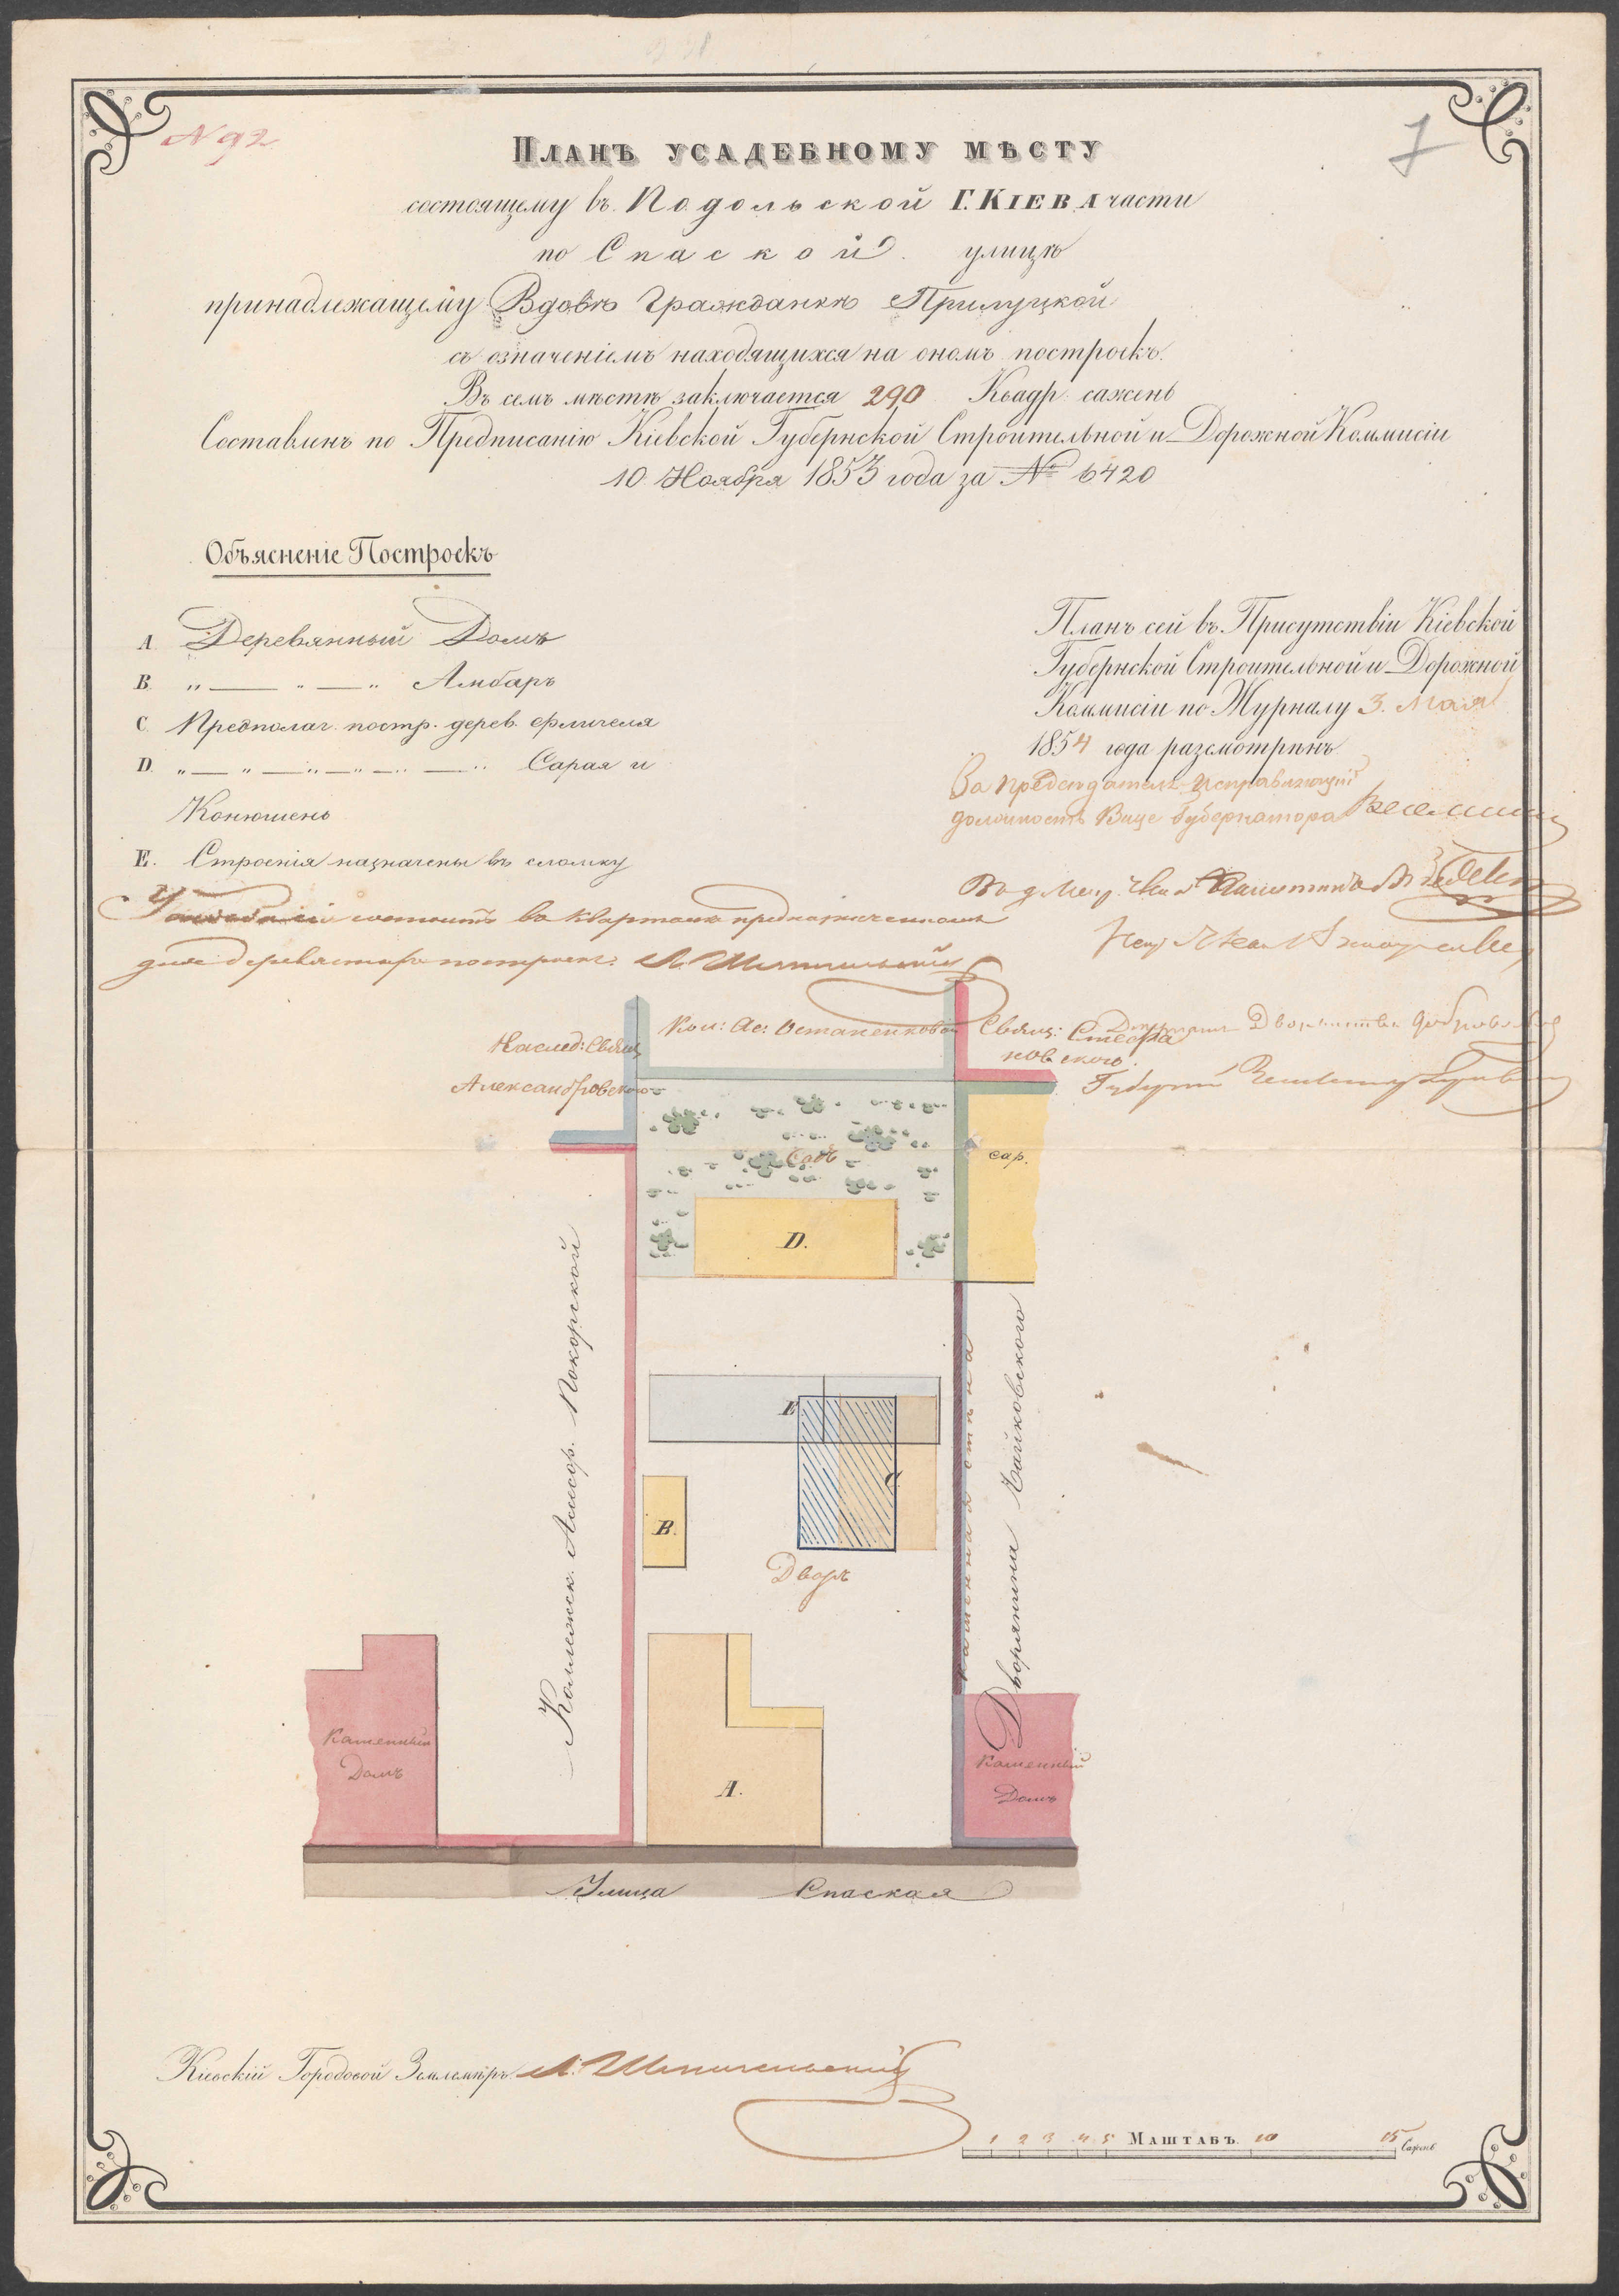 N 92
7
Планъ усадебному мѣсту
состоящему въ Подольской Г. Кіева части
по Спаской улицѣ
принадлежащему Вдовѣ Гражданкѣ Прилуцкой
съ означеніемъ находящихся на ономъ построекъ.
Въ семъ мѣстѣ заключается 290 Квадр: сажень
Составленъ по Предписанію Кіевской Губернской Строительной и Дорожной Коммисіи
10 Ноября 1853 года за № 6420
Объясненіе Построекъ
A. Деревянный Домъ
B. „ — „ — „ Амбаръ
C Предполаг. постр. дерев. флигеля
D. „ — „ — „ — „ — „ — „ Сарая и
Конюшень
E. Строенія назначены въ сломку
состоитъ въ кварталѣ предназначенномъ
для деревянныхъ построекъ.
Планъ сей въ Присутствіи Кіевской
Губернской Строительной и Дорожной
Коммисіи по Журналу 3. Мая
1854 года разсмотрѣнъ
За Предсѣдателя Исправляющій
должность Вице Губернатора
Наслед: Свящ
Александровского
Кол: Ас: Остапенковой
Свящ: Стефа
новского.
Садъ
сар.
D.
Коллежск. Ассесор. Покорской
каменная стѣна
Дворянина Чайковского
E
C
B.
Дворъ
Каменный
Домъ
A.
Каменный
Домъ
Улица Спаская
Кіевскій Городовой Землемѣръ
1 2 3 4 5 Масштабъ. 10 15 Сажень